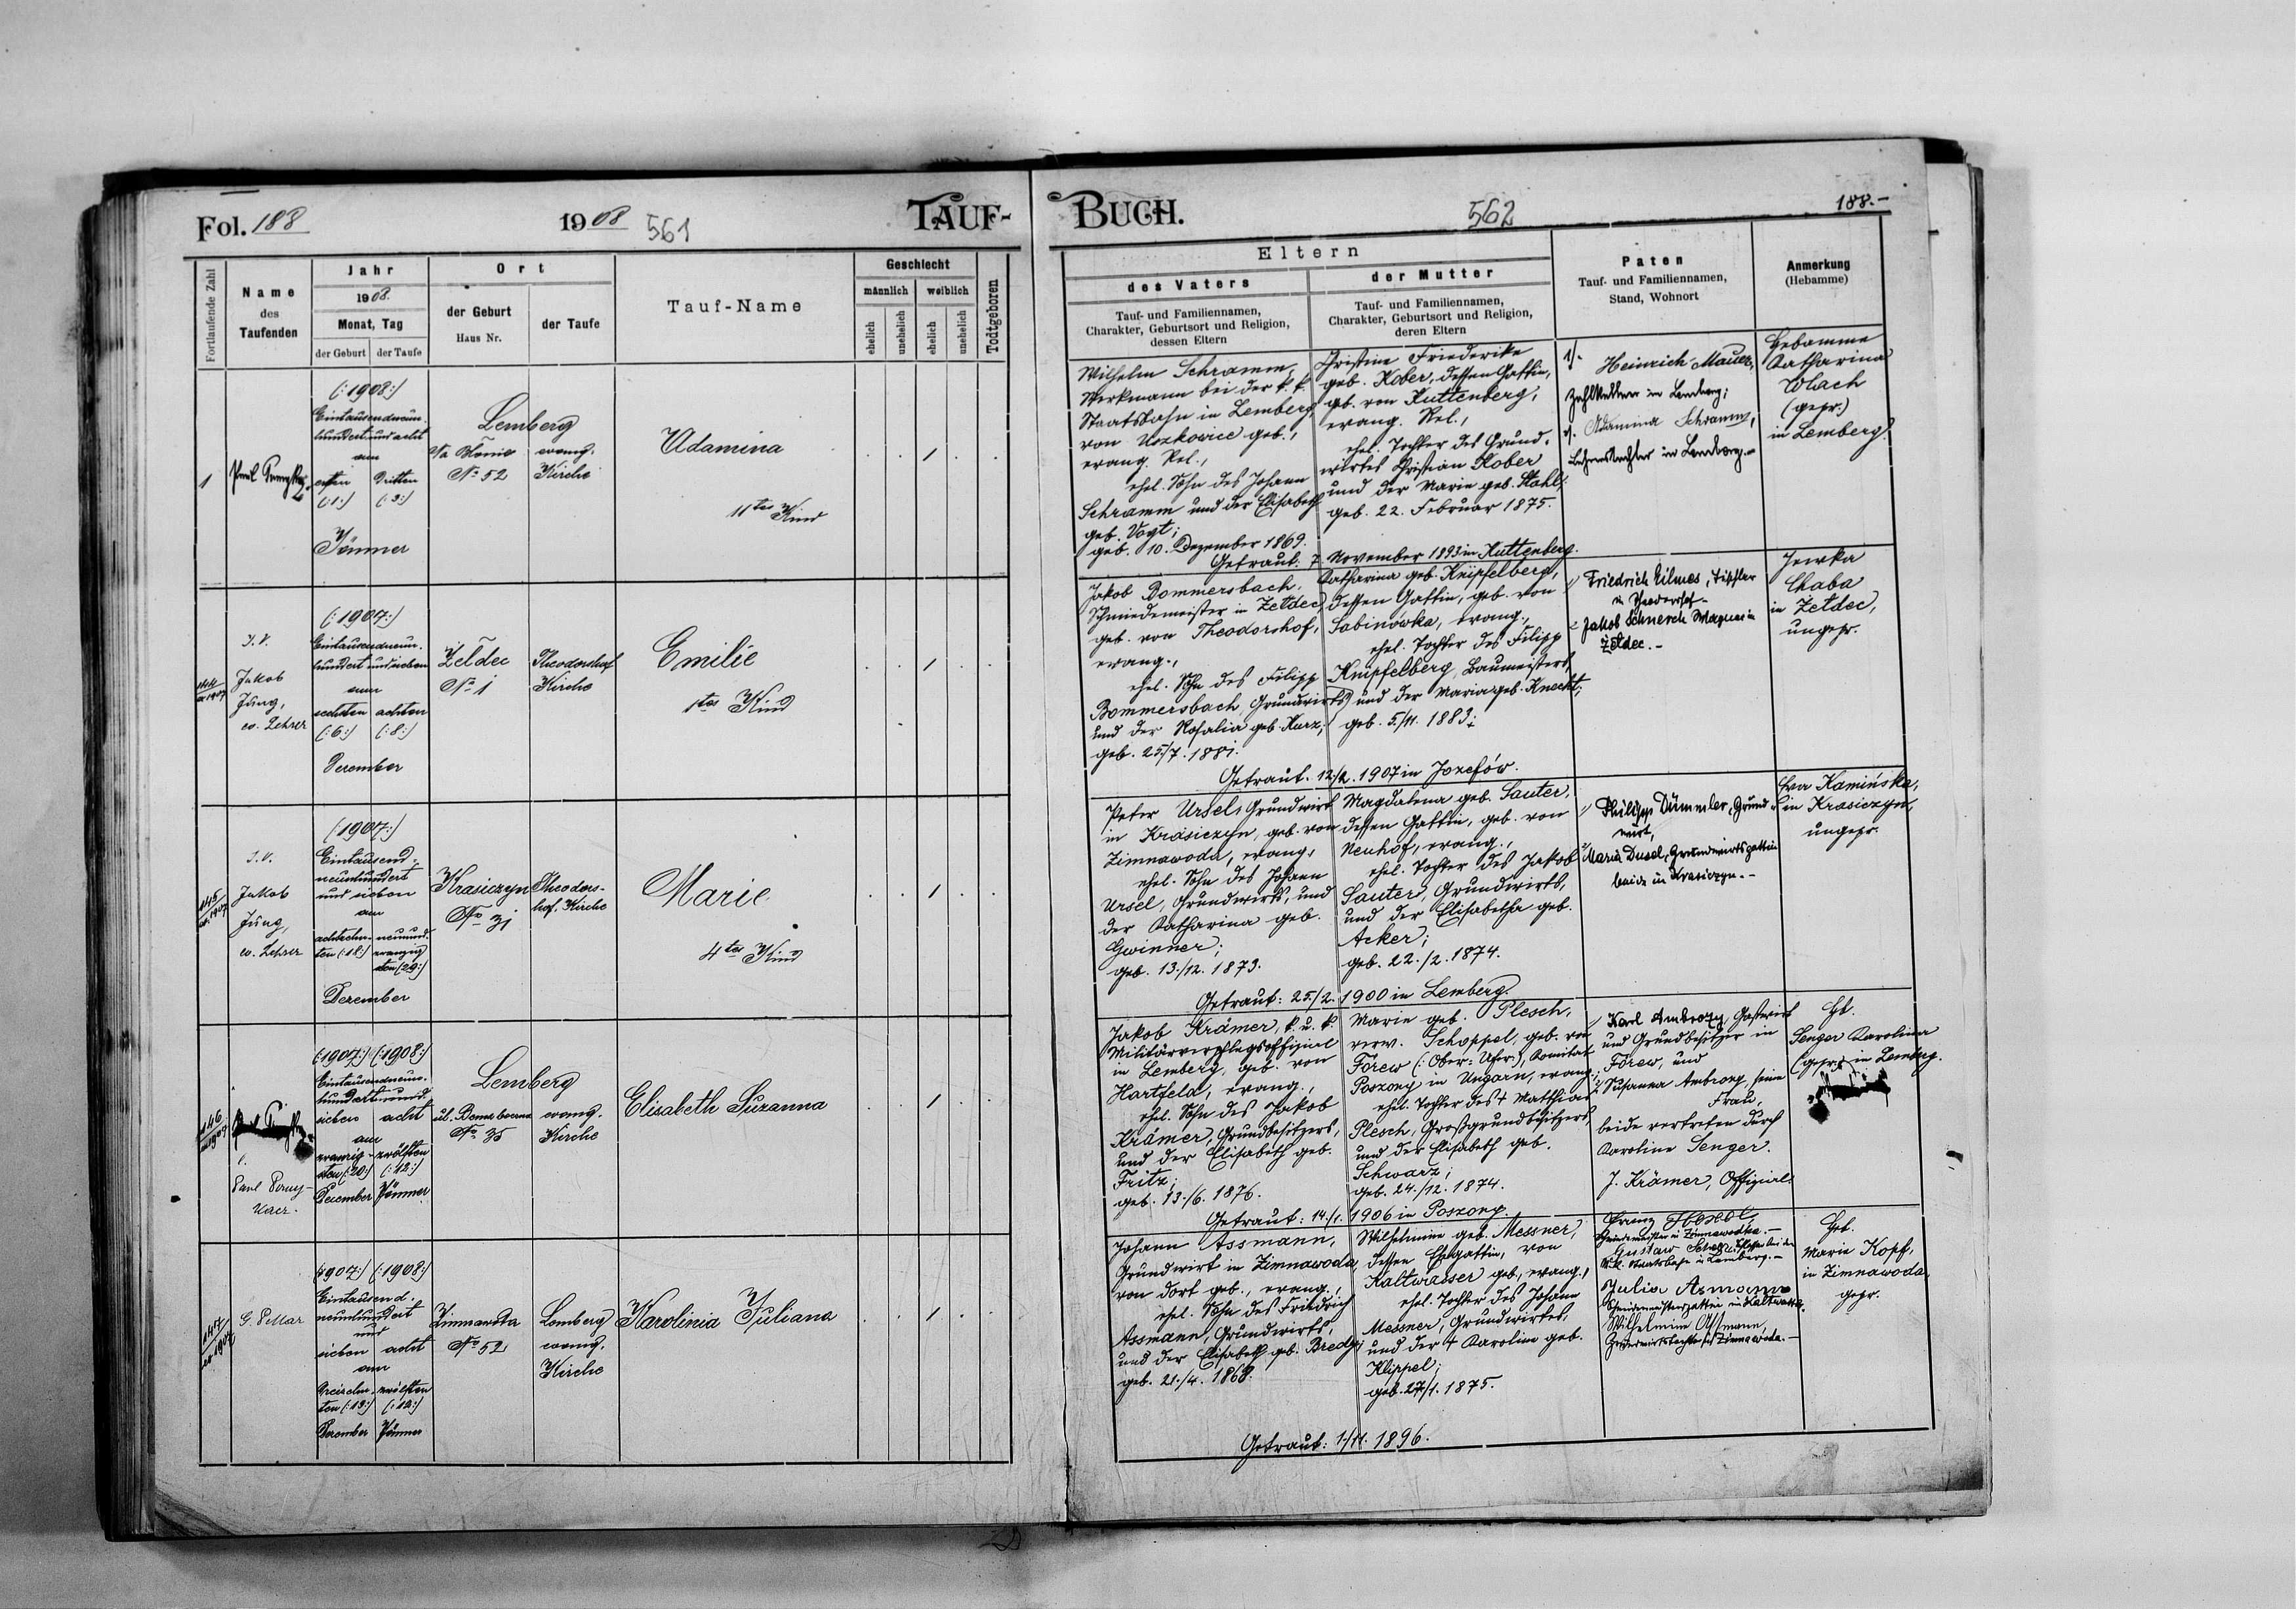 Fol. 188
1908
561
TAUF-
Fortlaufende Zahl
Name
des
Taufenden
Jahr
1908.
Monat, Tag
der Geburt
der Taufe
Ort
der Geburt
Haus Nr.
der Taufe
Tauf-Name
Geschlecht
männlich
weiblich
ehelich
unehelich
ehelich
unehelich
Todtgeboren
1
(:1908:)
Eintausendneun-
hundert und acht
am
ersten
dritten
(:1:)
(:3:)
Jänner
Lemberg
No 52
evang.
Kirche
Adamina
11tes Kind
1
144
ex 1907
I. V.
Jakob
Jung,
ev. Lehrer
(:1907:)
Eintausendneun-
hundert und sieben
am
sechsten
achten
(:6:)
(:8:)
Dezember
Żeldec
No 1
Theodorshof
Kirche
Emilie
1tes Kind
1
145
ex 1907
I. V.
Jakob
Jung,
ev. Lehrer
(:1907:)
Eintausend-
neunhundert
und sieben
am
achtzehn-
ten (:18:)
neunund-
zwanzig
sten (29:)
Dezember
Krasiczyn
No 31
Theodors-
hof, Kirche
Marie
4tes Kind
1
146
ex 1907
(:1907:) (:1908:)
Eintausendneun-
hundert und
sieben
acht
am
zwanzig-
sten (:20:)
zwölften
(:12:)
Dezember
Jänner
Lemberg
No 35
evang.
Kirche
Elisabeth Suzanna
1
147
ex 1907
(:1907:) (:1908:)
Eintausend-
neunhundert
und
sieben
acht
am
dreizehn-
ten (:13:)
zwölften
(:12:)
Dezember
Jänner
Zimnawoda
No 52
Lemberg
evang.
Kirche
Karolinia Juliana
1
BUCH.
562
188.-
Eltern
des Vaters
Tauf- und Familiennamen,
Charakter, Geburtsort und Religion,
dessen Eltern
der Mutter
Tauf- und Familiennamen,
Charakter, Geburtsort und Religion,
deren Eltern
Paten
Tauf- und Familiennamen,
Stand, Wohnort
Anmerkung
(Hebamme)
Wilhelm Schramm,
Werkmann bei der k. k.
Staatsbahn in Lemberg,
von Uszkowice geb.,
evang. Rel.,
ehel. Sohn des Johann
Schramm und der Elisabeth
geb. Vogt;
geb. 10. Dezember 1869.
Christine Friederike
geb. Kober, dessen Gattin,
geb. von Kuttenberg,
evang. Rel.,
ehel. Tochter des Grund-
wirtes Christian Kober
und der Marie geb. Stahl;
geb. 22. Februar 1875.
Getraut: 7. November 1893 in Kuttenberg.
1/. Heinrich Mauer,
in Lemberg;
Adamina Schramm,
in Lemberg.-
Hebamme
Katharina
Wlach
(gepr.)
in Lemberg.
Jakob Bommersbach,
Schmiedemeister in Żełdec,
geb. von Theodorshof,
evang.,
ehel. Sohn des Filipp
Bommersbach, Grundwirts
und der Rosalia geb. Kurz;
geb. 25/7. 1881.
Katharina geb. Knipfelberg,
dessen Gattin, geb. von
Sabinówka, evang.,
ehel. Tochter des Filipp
Knipfelberg, Baumeisters,
und der Maria geb. Knecht;
geb. 5./11. 1883;
Getraut. 12./2. 1907 in Jozefów.
Friedrich Hilmes, Tischler
in Theodorshof-
Jakob Schnerch
Żełdec.-
Jewka
Chaba
in Żełdec,
ungepr.
Peter Ursel, Grundwirt
in Krasiczyn, geb. von
Zimnawoda, evang.,
ehel. Sohn des Johann
Ursel, Grundwirts, und
der Katharina geb.
Gwinner;
geb. 13./12. 1873.
Magdalena geb. Sauter,
dessen Gattin, geb. von
Neuhof, evang.,
ehel. Tochter des Jakob
Sauter, Grundwirts,
und der Elisabetha geb.
Acker;
geb. 22./2. 1874.
Getraut: 25./2. 1900 in Lemberg.
Philipp Dümmler, Grund-
wirt,
Maria Dusel, Grundwirtsgattin
beide in Krasiczyn.-
Ewa Kamińska,
in Krasiczyn,
ungepr.
Jakob Krämer, k. u. k.
Militärverpflegsoffizial
in Lemberg, geb. von
Hartfeld, evang.,
ehel. Sohn des Jakob
Krämer, Grundbesitzers,
und der Elisabeth geb.
Fritz;
geb. 13./6. 1876.
Marie geb. Plesch,
verw. Schoppel, geb. von
Förew (:Ober-Ufer:), Komitat
Poszony in Ungarn, evang.,
ehel. Tochter des † Matthias
Plesch, Großgrundbesitzers,
und der Elisabeth geb.
Schwarz;
geb. 24./12. 1874.
Getraut: 14./1. 1906 in Poszony.
Karl Ambrozy, Gastwirt
und Grundbesitzer in
Förew, und
Susanna Ambrozy, seine
Frau,
beide vertreten durch
Karoline Senger.
J. Krämer, Offizial
Hb.
Senger Karolina
(gepr.) in Lemberg.
Johann Assmann,
Grundwirt in Zimnawoda,
von dort geb., evang.,
ehel. Sohn des Friedrich
Assmann, Grundwirts,
und der Elisabeth geb. Bredy;
geb. 21./4. 1868.
Wilhelmine geb. Messner,
dessen Ehegattin, von
Kaltwasser geb., evang.,
ehel. Tochter des Johann
Messner, Grundwirtes,
und der † Karoline geb.
Klippel;
geb. 27/1. 1875.
Getraut: 1./11. 1896.
k.k. Staatsbahn in Lemberg.-
Wilhelmine Assmann,
Grundwirtstochter in Zimnawoda.-
Heb.
Marie Kopf,
in Zimnawoda,
gepr.